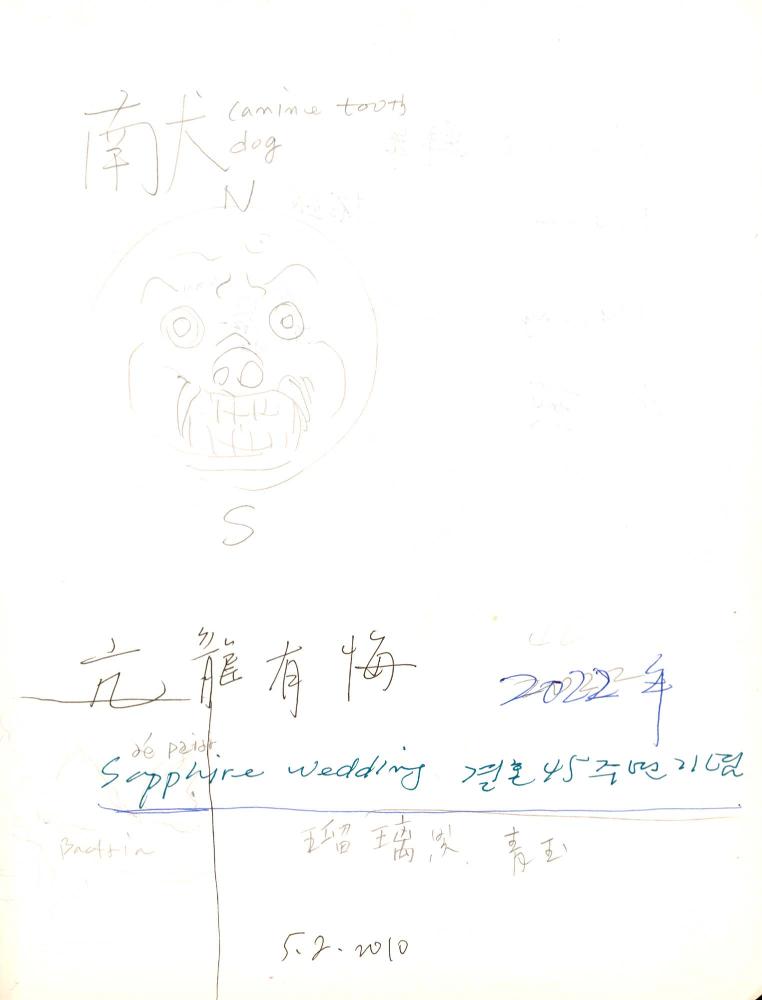 南犬 canine tooth
dog
N
S
亢龍有悔
2022年
sæpaiər
Sapphire wedding 결혼 45주년기념
Bactria
瑠璃빛. 青玉
5.2.2010